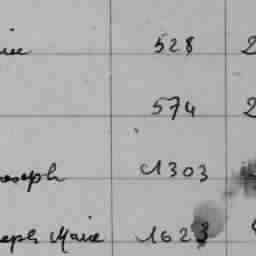 528 2
574 2
oseph 1303
eph Marie 1623